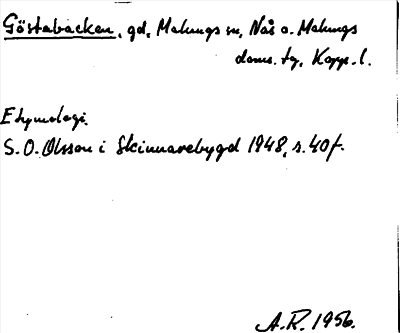 Göstabacken, gd, Malungs sn, Nås o. Malungs
doms. tg, Kopp. l.
Etymologi.
S. O. Olsson i Skinnarebygd 1948, s. 40 f.
A. R. 1956.